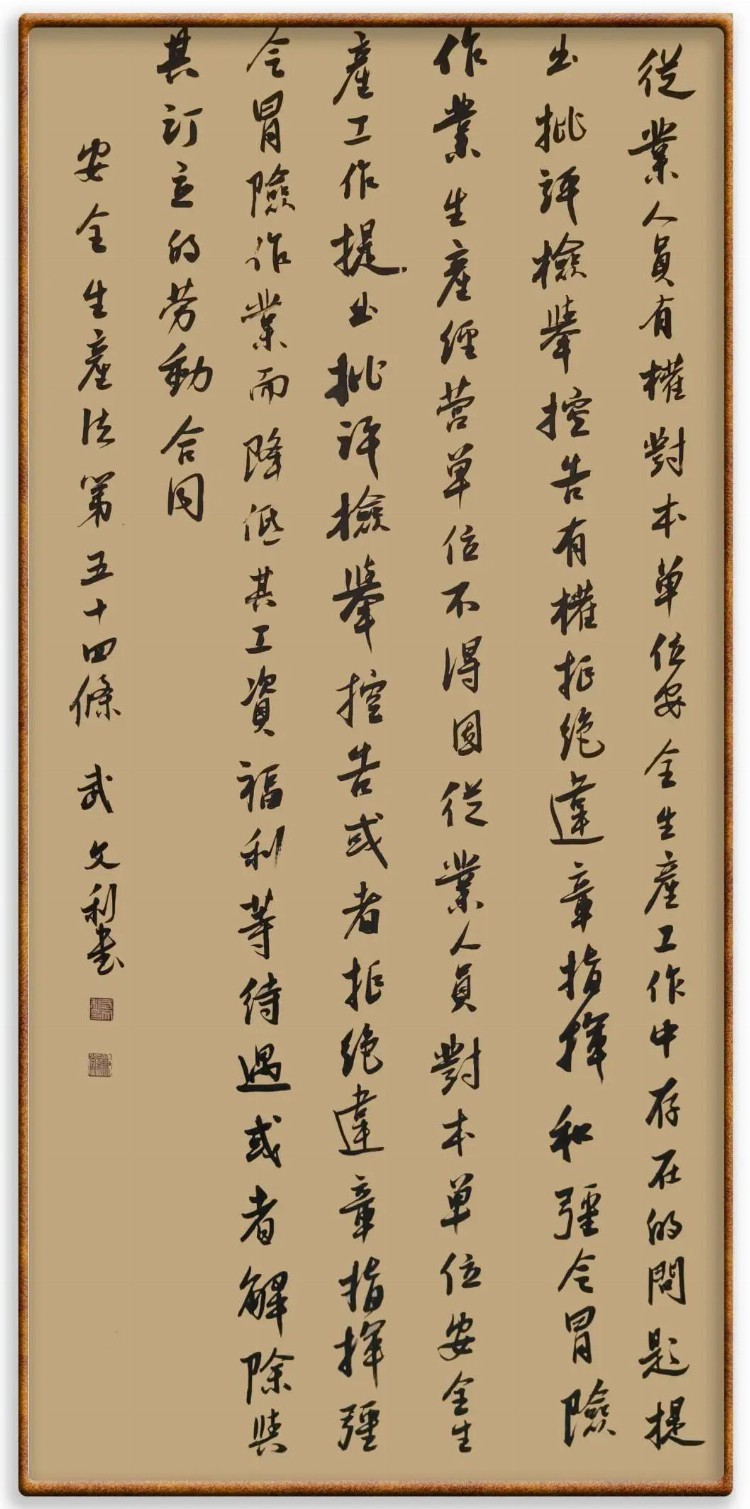 從業人員有權對本单位安全生産工作中存在的問題提
出批評檢舉控告有權拒绝違章指揮和彊令冒險
作業生産經营单位不得因從業人員對本单位安全生
産工作提出批评檢舉控告或者拒绝違章指揮彊
令冒險作業而降低其工資福利等待遇或者解除與
其订立的劳動合同
安全生産法第五十四條 武文利书